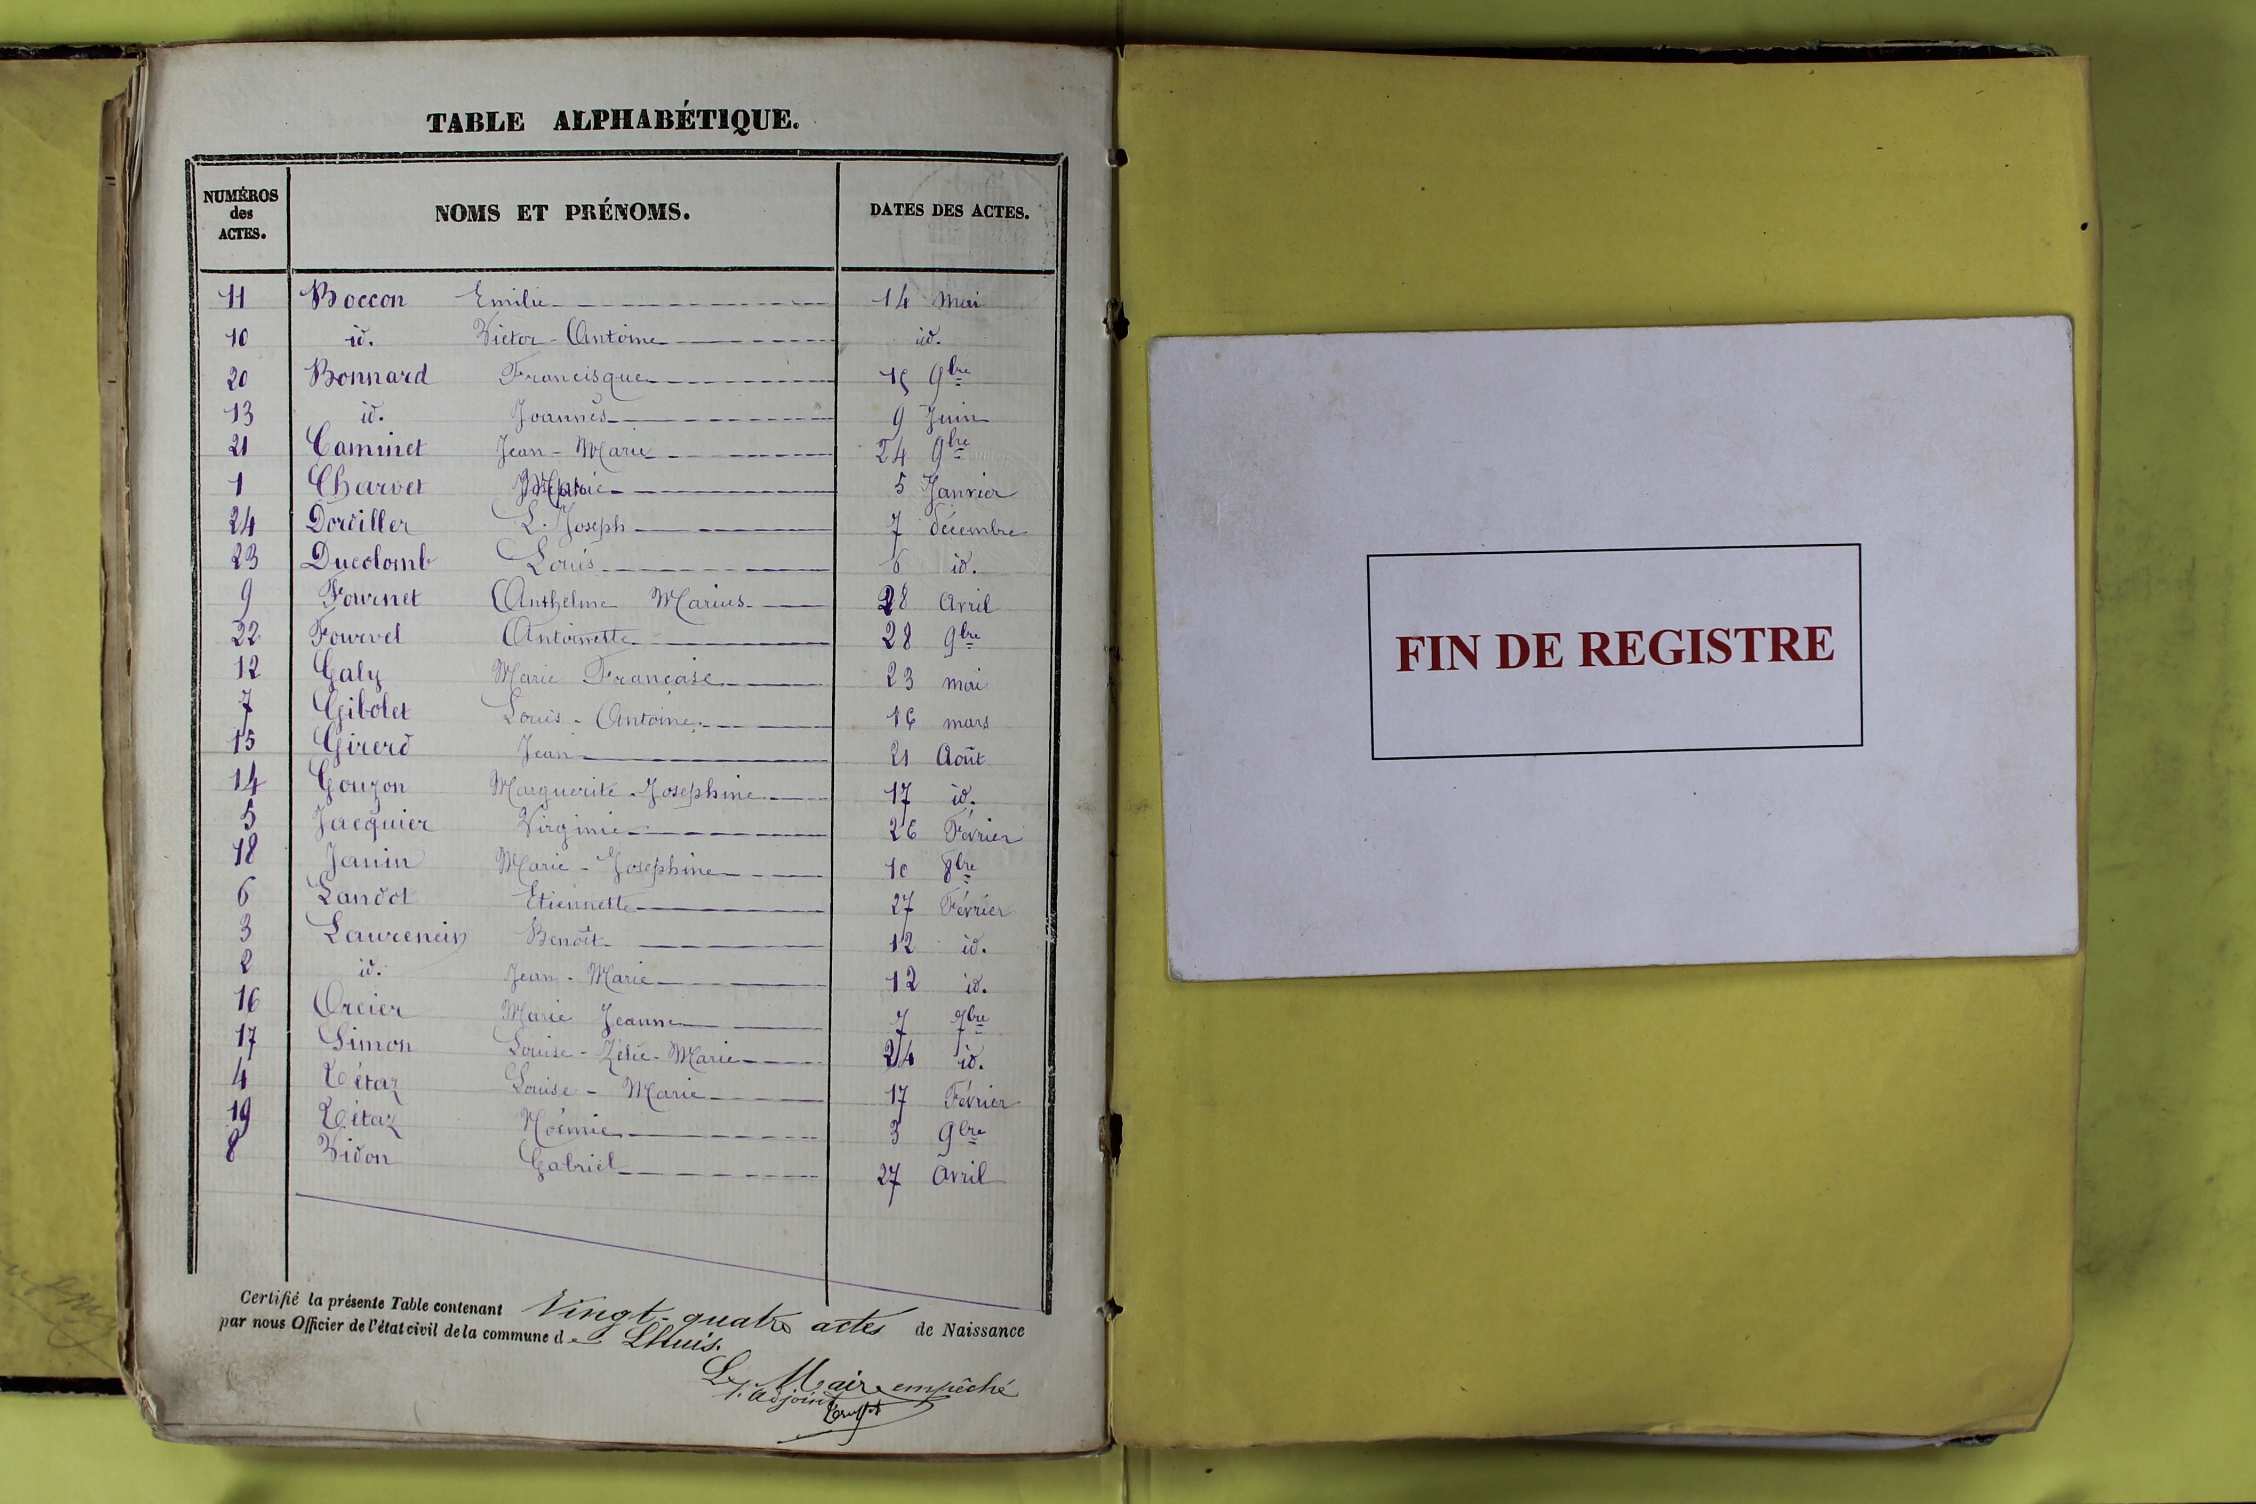 TABLE ALPHABÉTIQUE.
NUMÉROS des ACTES. NOMS ET PRÉNOMS. DATES DES ACTES.
11 Boccon Emilie 14 mai
10 id. Victor-Antoine id.
20 Bonnard Francisque 15 9bre
13 id. Joannès 9 Juin
21 Caminet Jean-Marie 24 9bre
1 Charvet 5 Janvier
24 Dorviller L. Joseph 7 décembre
23 Ducolomb Louis 6 id.
9 Fournet Anthelme Marius 28 Avril
22 Fourvel Antoinette 28 9bre
12 Galy Marie Française 23 mai
7 Gibolet Louis-Antoine 16 mars
15 Girerd Jean 21 Août
14 Gouzon Marguerite-Josephine 17 id.
5 Jacquier Virginie 26 Février
18 Janin Marie-Josephine 10 8bre
6 Landot Etiennette 27 Février
3 Laurencin Benoît 12 id.
2 id. Jean-Marie 12 id.
16 Orcier Marie Jeanne 7 7bre
17 Simon Louise-Zélie-Marie 24 id.
4 Tétaz Louise-Marie 17 Février
19 Tétaz Noémie 3 9bre
8 Vidon Gabriel 27 Avril
Certifié la présente Table contenant Vingt-quatre actes de Naissance
par nous Officier de l'état civil de la commune de Lhuis.
Le Maire empêché
l'adjoint
FIN DE REGISTRE